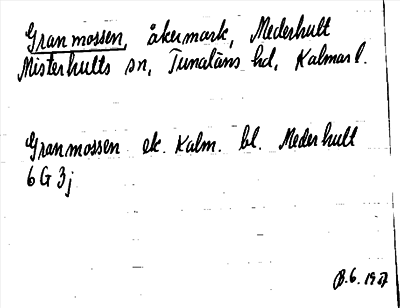 Granmossen, åkermark, Mederhult
Misterhults sn, Tunaläns hd, Kalmar l.
Granmossen ek. Kalm. bl. Mederhult
6 G 3j
B.6.1937